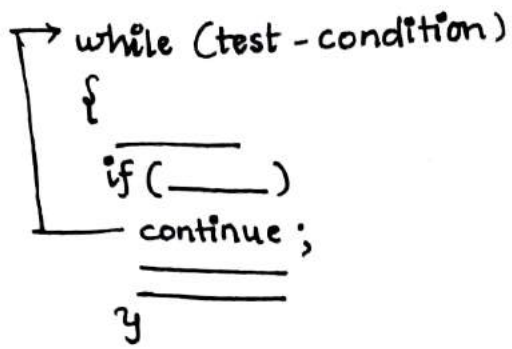 while (test-condition)
{
if (______)
continue;
}